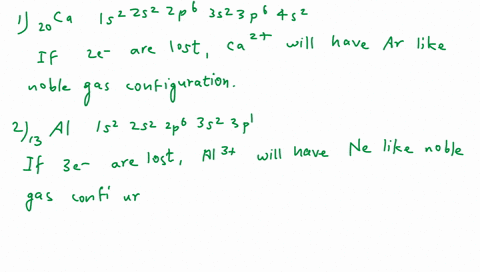 1) ₂₀Ca 1s² 2s² 2p⁶ 3s² 3p⁶ 4s²
If 2e⁻ are lost, Ca²⁺ will have Ar like
noble gas configuration.
2) ₁₃Al 1s² 2s² 2p⁶ 3s² 3p¹
If 3e⁻ are lost, Al³⁺ will have Ne like noble
gas confi ur